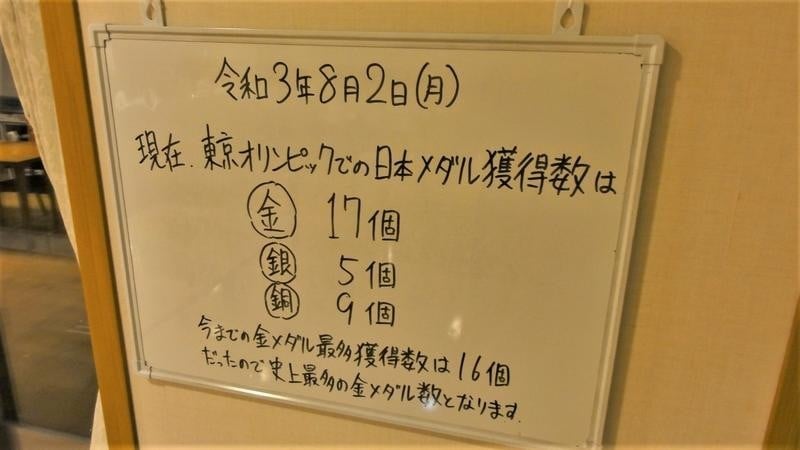 令和3年8月2日(月)
現在.東京オリンピックでの日本メダル獲得数は
金 17個
銀 5個
銅 9個
今までの金メダル最多獲得数は16個
だったので史上最多の金メダル数となります.